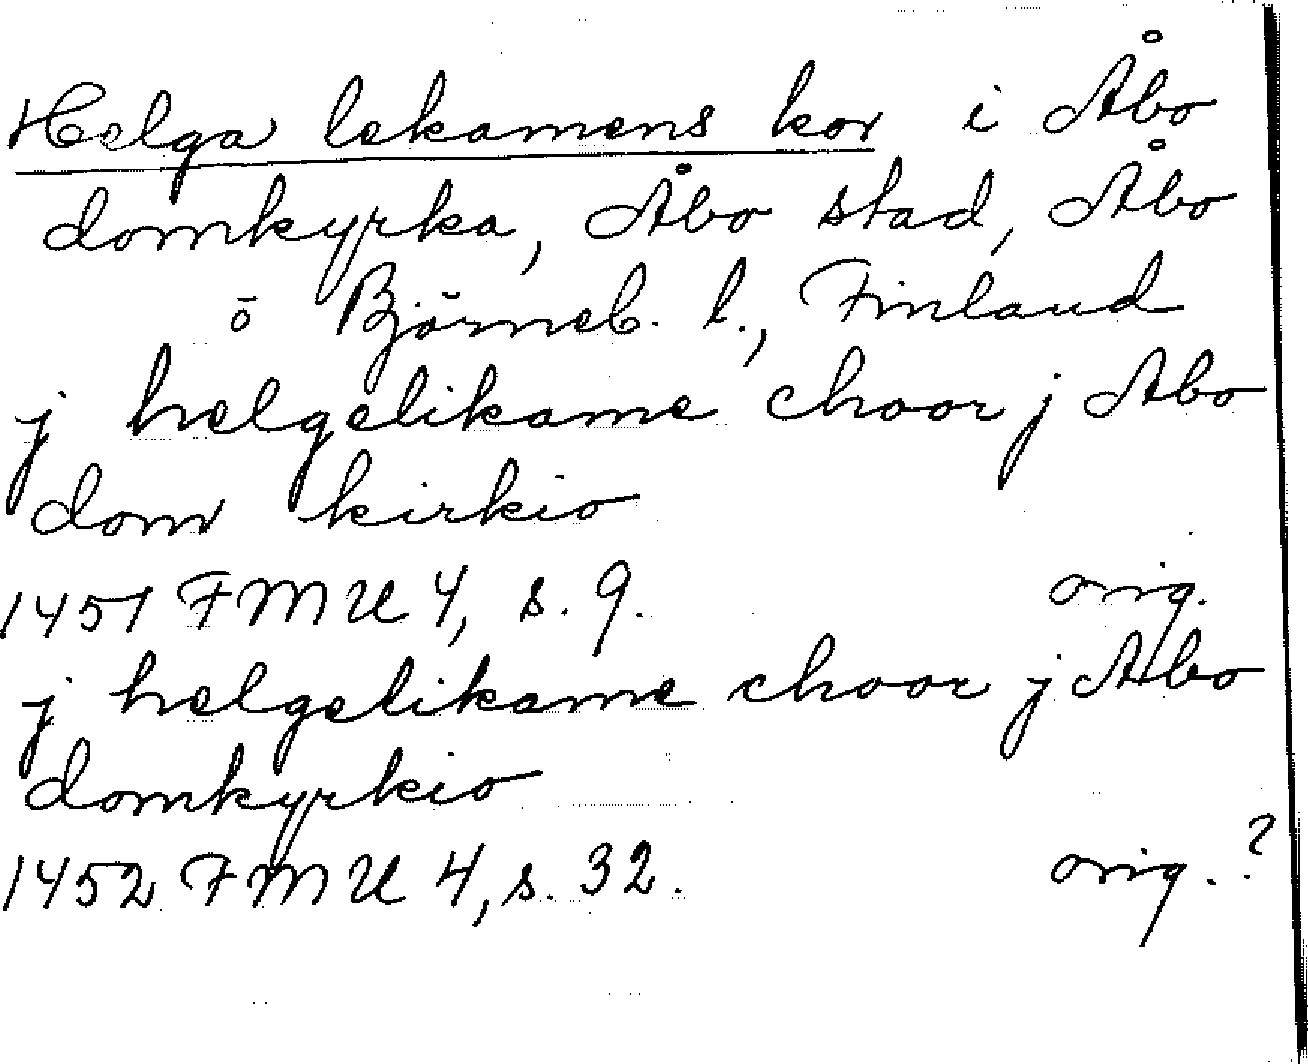 Helga lekamens kor i Åbo
domkyrka, Åbo stad, Åbo
o Björneb. l., Finland
j helgelikame choor j Abo
dom kirkio
1451 FMU 4, s. 9. orig.
j helgelikame choor j Abo
domkyrkio
1452 FMU 4, s. 32. orig.?